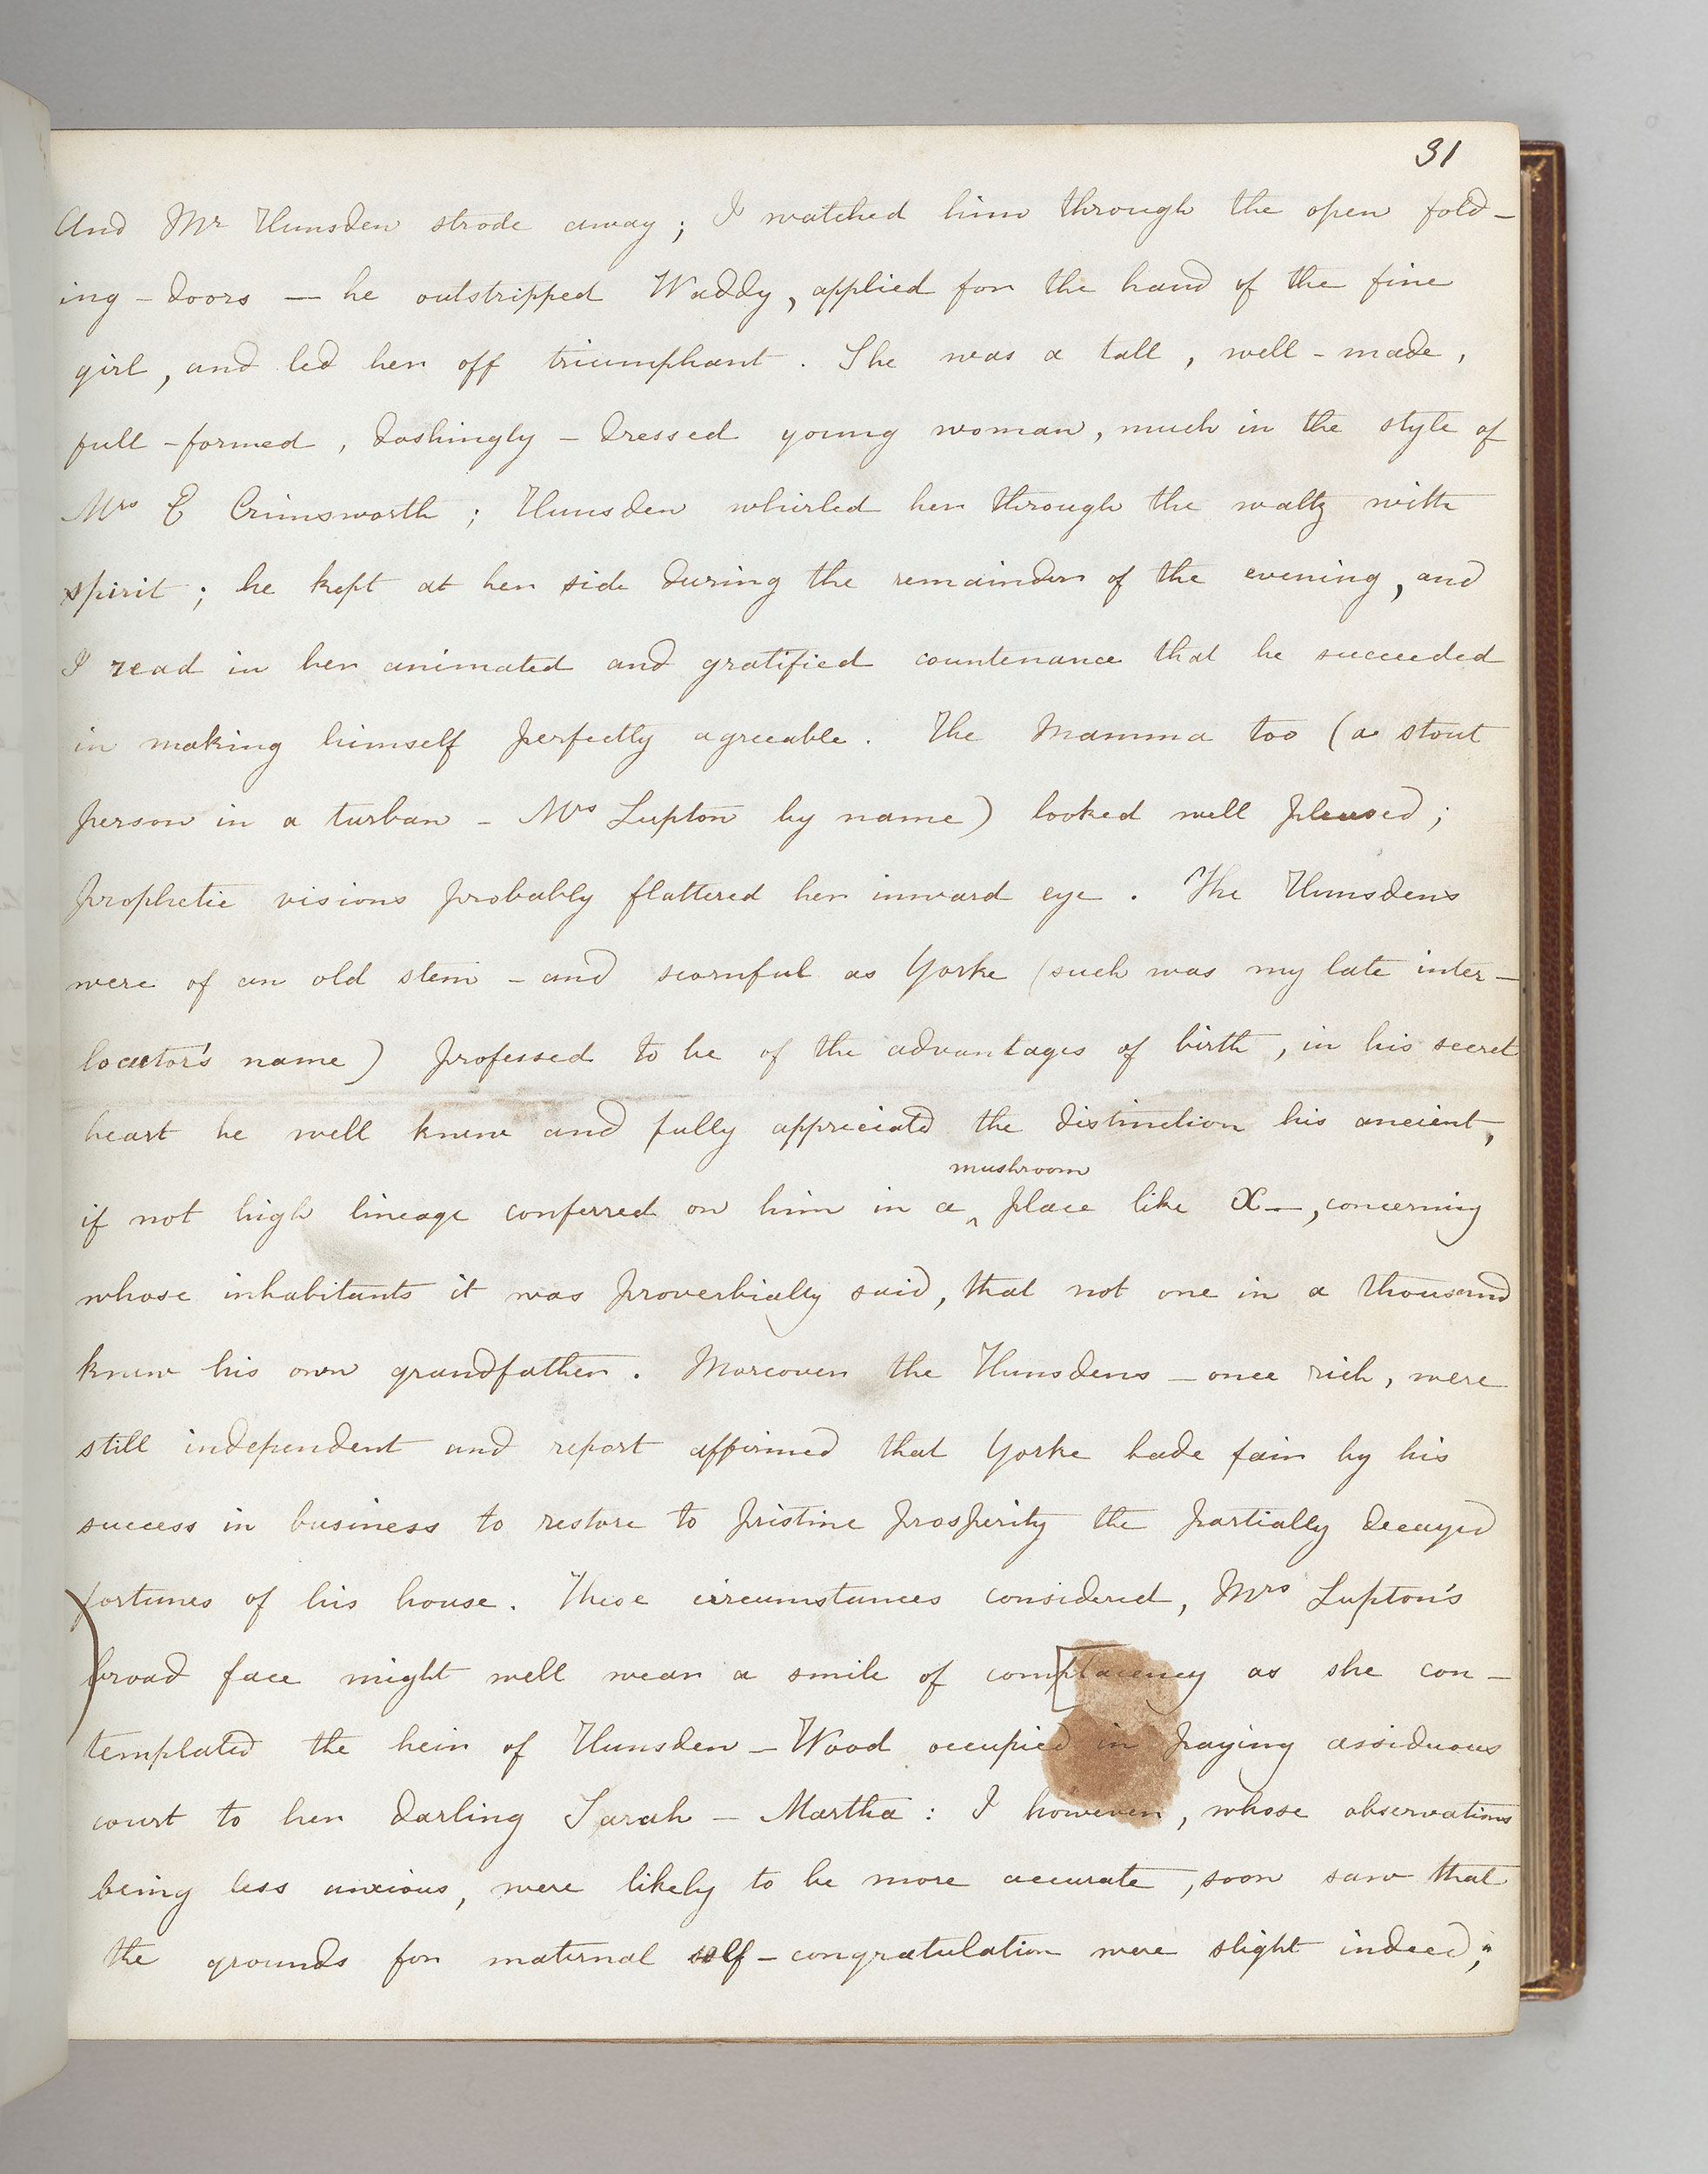 31
And Mr Hunsden strode away; I watched him through the open fold-
ing-doors — he outstripped Waddy, applied for the hand of the fine
girl, and led her off triumphant. She was a tall, well-made,
full-formed, dashingly-dressed young woman, much in the style of
Mrs E Crimsworth; Hunsden whirled her through the waltz with
spirit; he kept at her side during the remainder of the evening, and
I read in her animated and gratified countenance that he succeeded
in making himself perfectly agreeable. The Mamma too (a stout
person in a turban - Mrs Lupton by name) looked well pleased;
prophetic visions probably flattered her inward eye. The Hunsdens
were of an old stem - and scornful as Yorke (such was my late inter-
locutor's name) professed to be of the advantages of birth, in his secret
heart he well knew and fully appreciated the distinction his ancient,
mushroom
if not high lineage conferred on him in a ^ place like X—, concerning
whose inhabitants it was proverbially said, that not one in a thousand
knew his own grandfather. Moreover the Hunsdens - once rich, were
still independent and report affirmed that Yorke bade fair by his
success in business to restore to pristine prosperity the partially decayed
fortunes of his house. These circumstances considered, Mrs Lupton's
broad face might well wear a smile of complacency as she con-
templated the heir of Hunsden-Wood occupied in paying assiduous
court to her darling Sarah-Martha: I however, whose observations
being less anxious, were likely to be more accurate, soon saw that
the grounds for maternal self-congratulation were slight indeed;